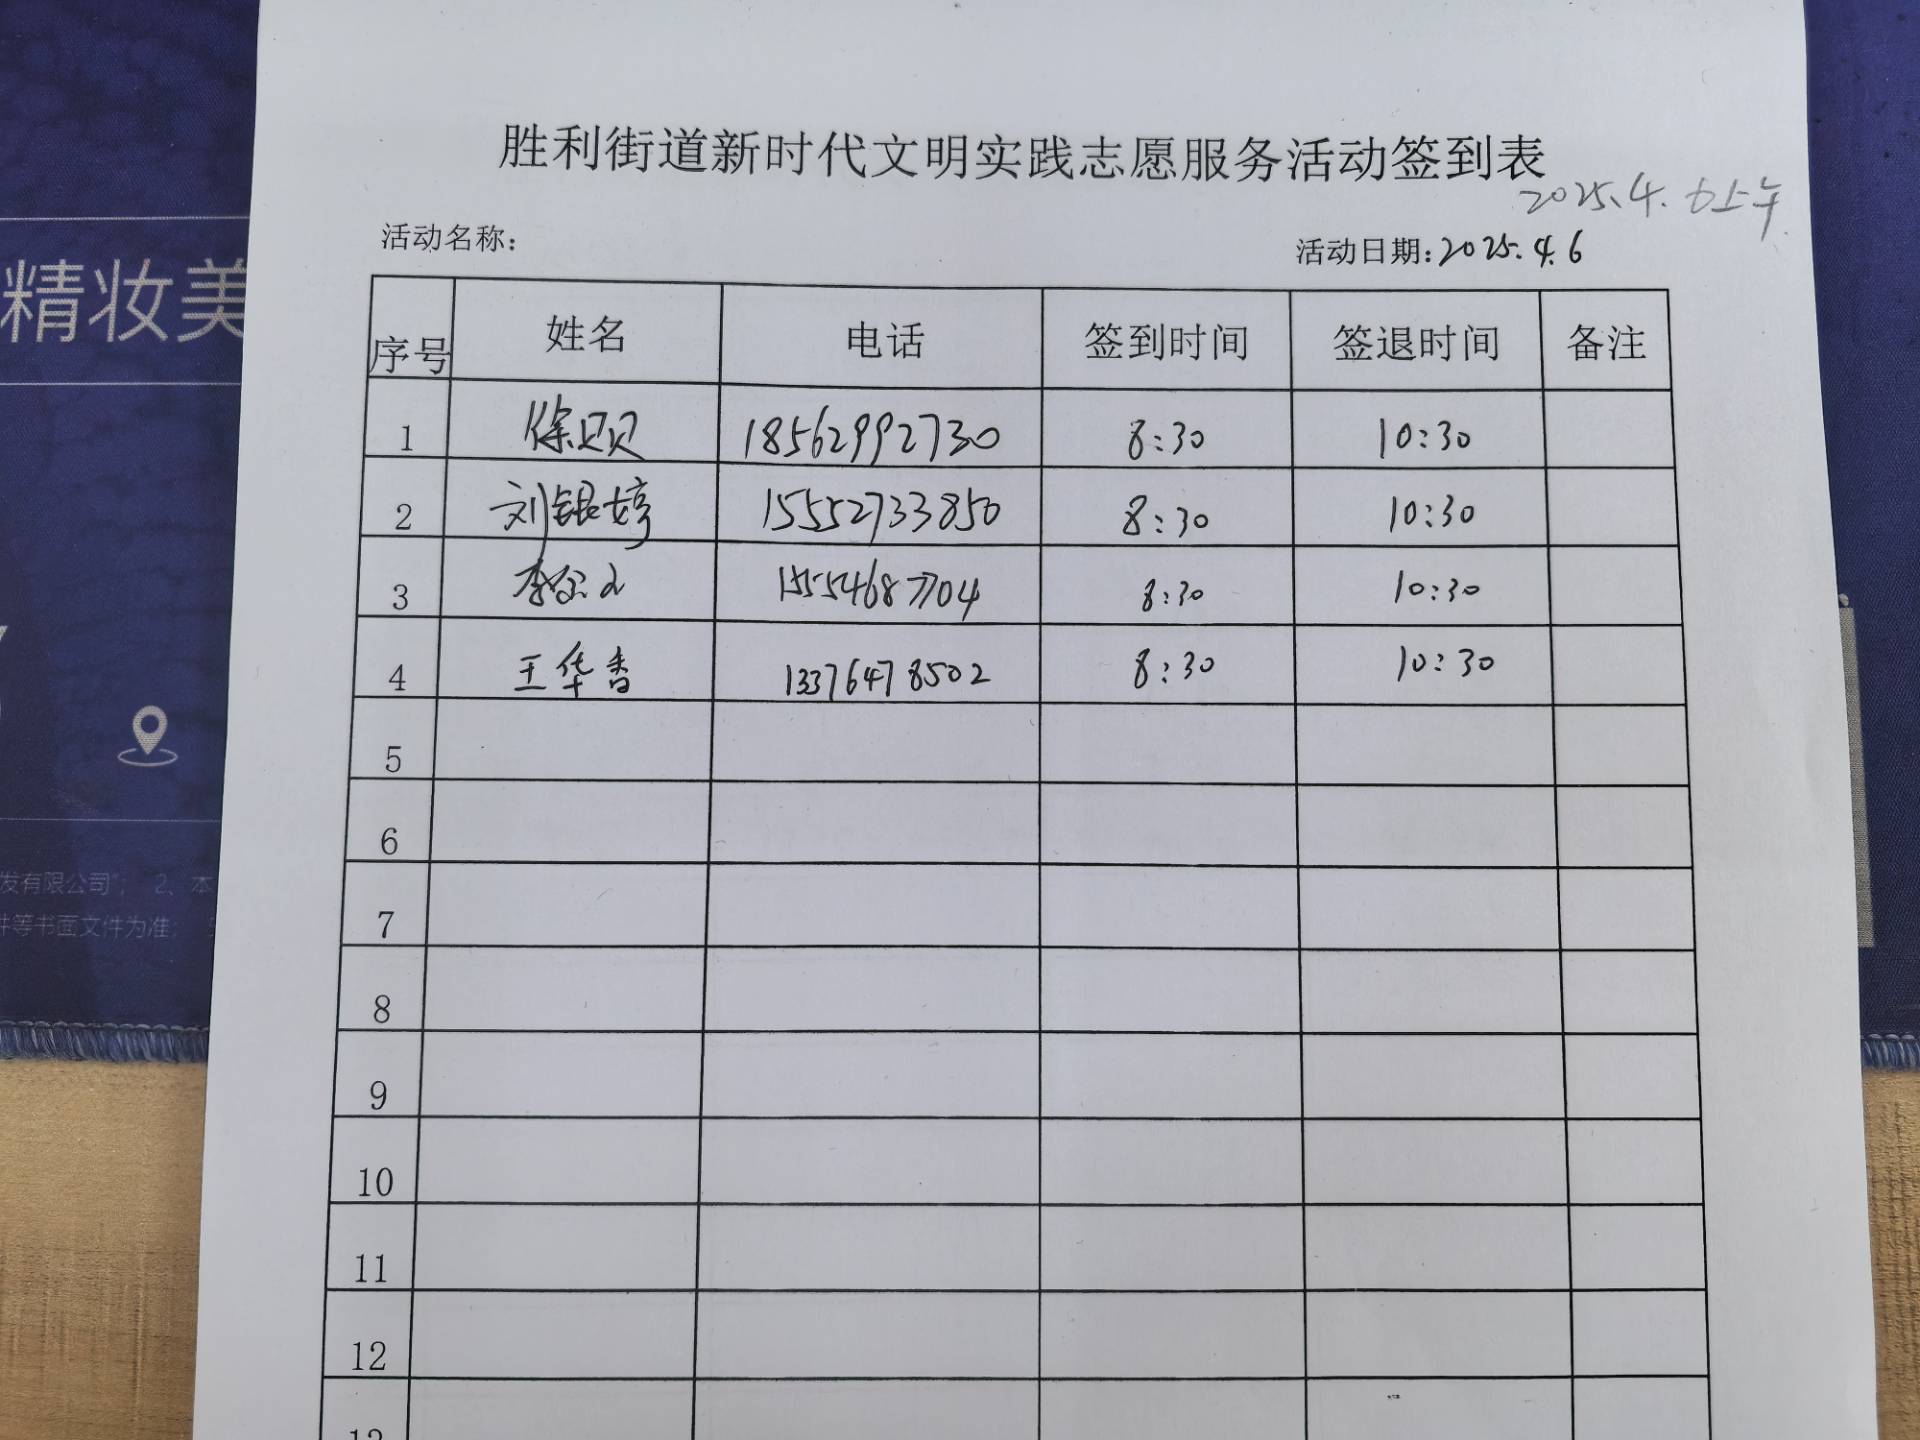 胜利街道新时代文明实践志愿服务活动签到表
2025.4.6上午
活动名称: 活动日期:2025.4.6
序号 姓名 电话 签到时间 签退时间 备注
1 徐贝贝 18562992730 8:30 10:30
2 刘银婷 15552733850 8:30 10:30
3 李 15554687704 8:30 10:30
4 王华香 13376478502 8:30 10:30
5
6
7
8
9
10
11
12
13
精妆美
发有限公司”; 2、本
件等书面文件为准;